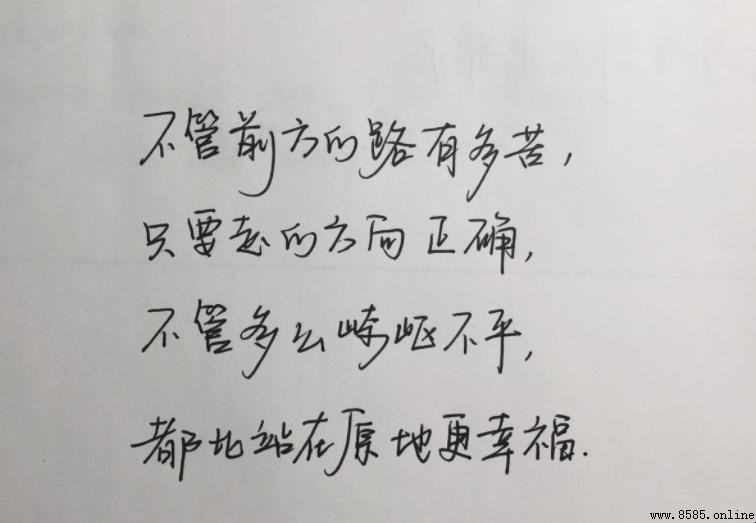 不管前方的路有多苦,
只要走的方向正确,
不管多么崎岖不平,
都比站在原地更幸福.
www.8585.online